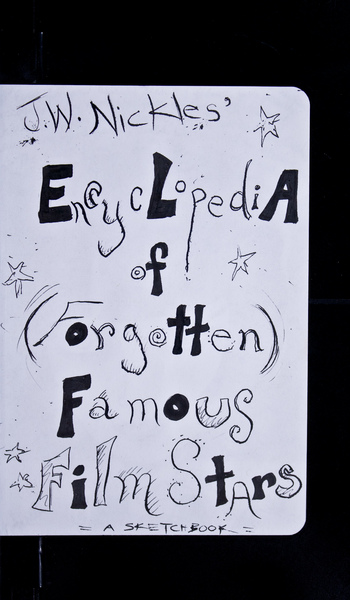 J.W. Nickles'
EncycLopediA
of
(Forgotten)
Famous
Film Stars
= A SKETCHBOOK =